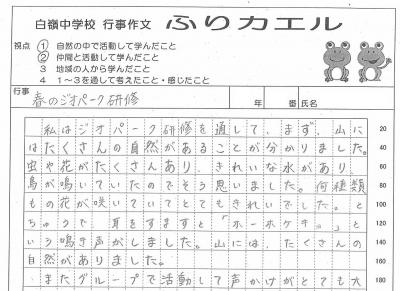 白嶺中学校 行事作文 ふりカエル
視点
① 自然の中で活動して学んだこと
② 仲間と活動して学んだこと
3 地域の人から学んだこと
4 1～3を通して考えたこと・感じたこと
行事
春のジオパーク研修
年 番 氏名
私はジオパーク研修を通して、まず、山に 20
はたくさんの自然があることが分かりました。 40
虫や花がたくさんあり、きれいな水があり、 60
鳥が鳴いていたのでそう思いました。何種類 80
もの花が咲いていてとてもきれいでした。と 100
ちゅうで、耳をすますと「ホーホケキョ」と 120
いう鳴き声がしました。山には、たくさんの 140
自然がありました。 160
またグループで活動して声かけがとても大 180